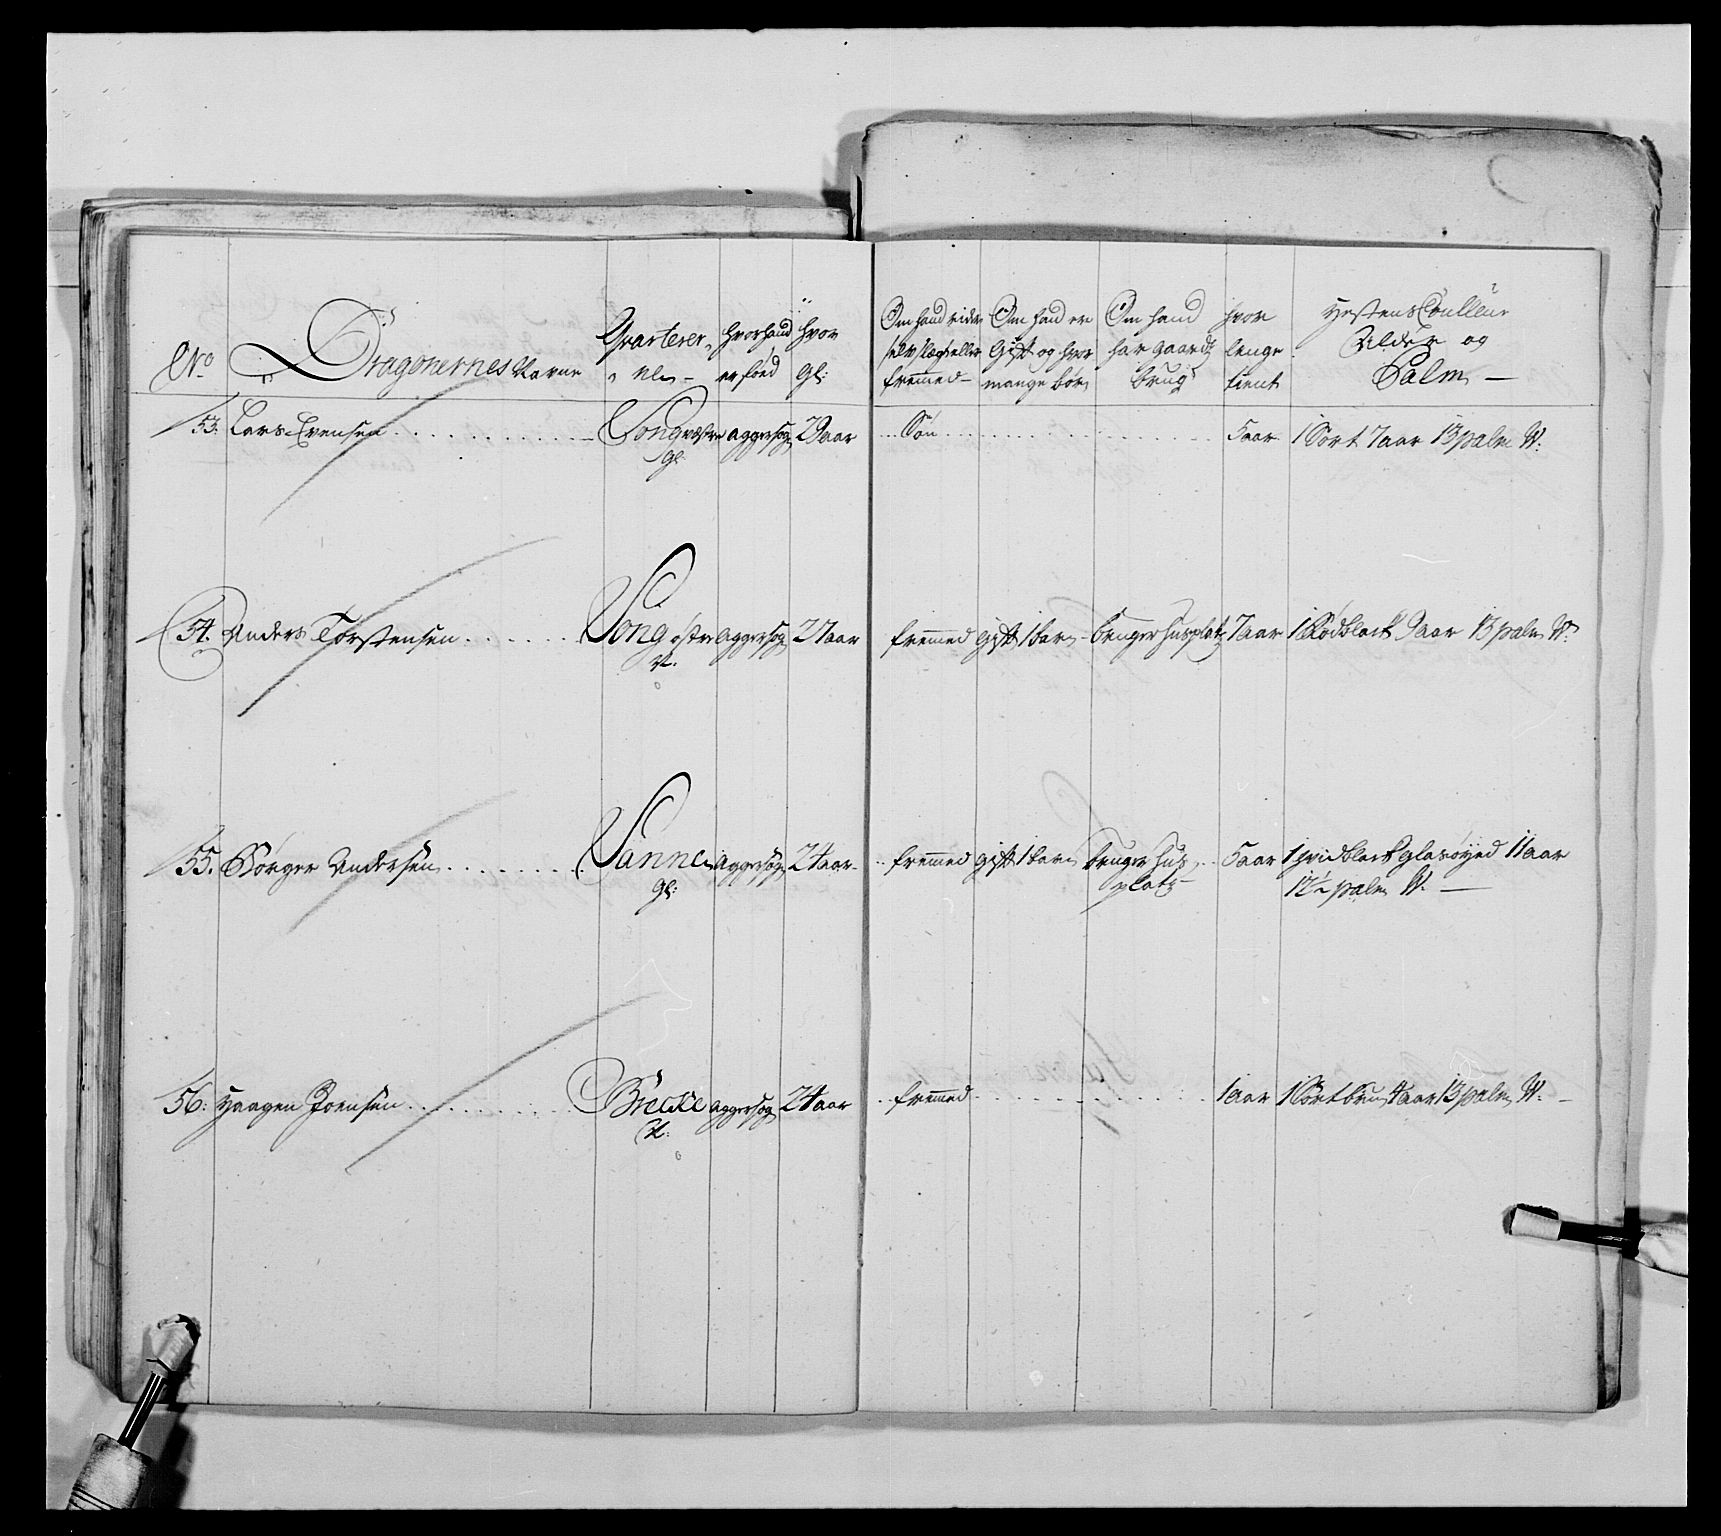 No Dragonernes Navne
Quarterer
hvor hand er foed
hvor Gl:
Om hand rider selv slegt eller fremed
Om hand er Gift og hvor mange børn
Om hand har gaardt brug
hvor lenge tient
Hestens Coulleur Alder og Palm
53. Lars Evensen Song vestre Aggersog 29 aar Søn 5 aar 1 Sort 7 aar 13 palm W:
Gl:
54. Anders Torstensen Song østre Aggersog 27 aar fremed gift 1 barn bruger husplatz 7 aar 1 Rødblack 9 aar 13 palm W:
55. Børger Andersen Sanne Aggersog 24 aar fremed gift 1 barn bruger hus 5 aar 1 hvidblack glasøyed 11 aar
Gl: platz 12½ palm W.
56: Haagen Joensen Brecke Aggersog 24 aar fremed 1 aar 1 Sortbrun 4 aar 13 palm W.